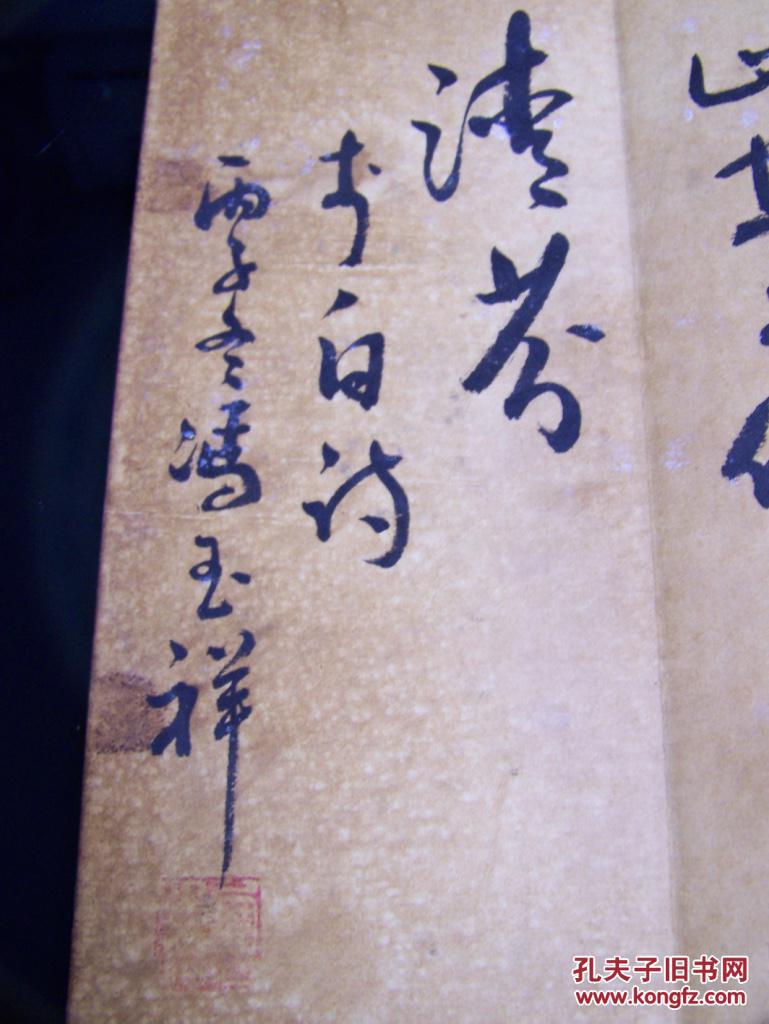 清芬
李白诗
丙子冬馮玉祥
孔夫子旧书网
www.kongfz.com